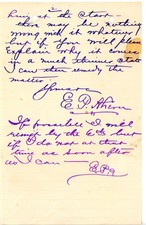 buy it at the Start
there may be nothing
wrong with it whatever
but if you will please
Explain why it comes
in a much thinner State
I can then remedy the
matter
Sincere
E. P.
If possible I will
remit by the 6th but
if I do not at that
time as soon after
as I can —
E.P.A